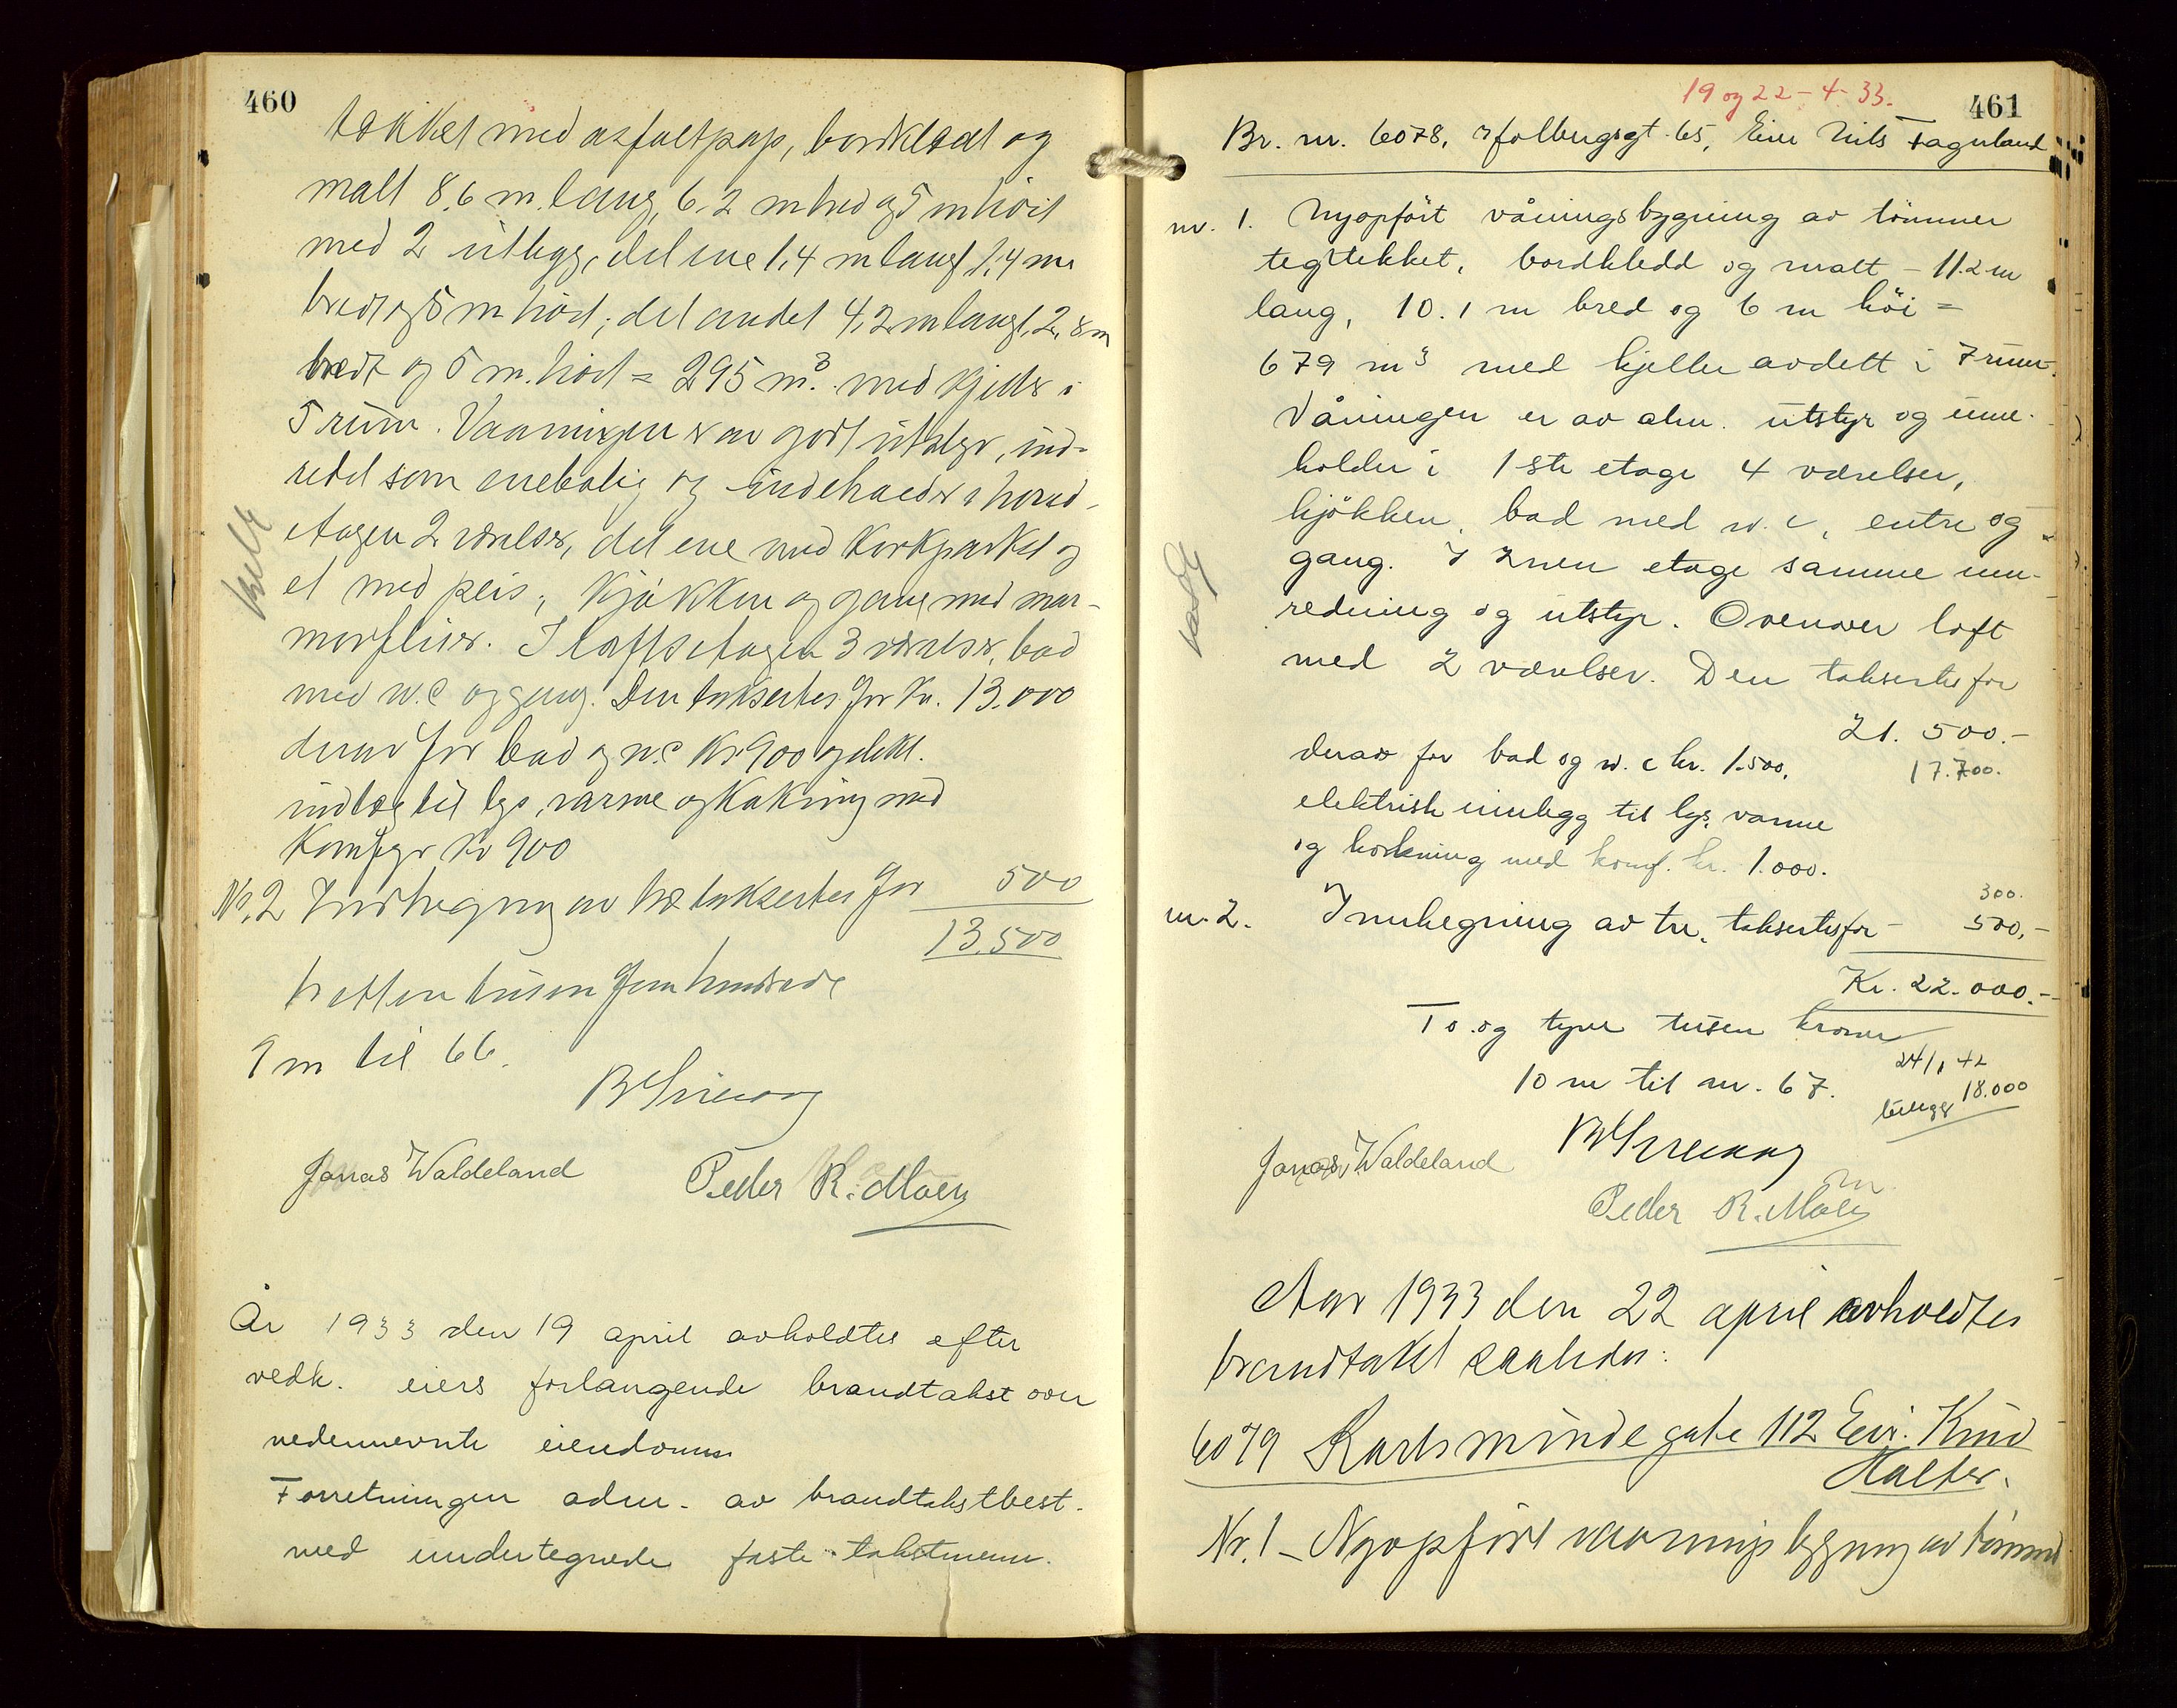 460
tækket med asfaltpap, bordklædt og
malt 8.6 m. lang, 6.2 m bred og 5 m höit
med 2 utbygg, det ene 1,4 m langt 1,4 m
bredt og 5 m höit, det andet 4,2 m langt, 2,8 m
bredt og 5 m. höit = 295 m³. med kjelder i
5 rum. Vaaningen er av godt utstyr, ind-
redet som enebolig og indeholder i hoved-
etagen 2 værelser, det ene med Korkparket og
et med peis, Kjökken og gang med mar-
morfliser. I loftsetagen 3 værelser, bad
med w.c og gang. Den taksertes for Kr. 13.000
derav for bad og w.c Kr 900 og elekt.
indlæg til lys, varme og Kokning med
Komfyr Kr 900
Nr. 2 Indhegning av træ taksertes for 500
13.500
tretten tusen fem hundrede
9 m til 66.
Jonas Waldeland Peder R. Moen
År 1933 den 19 april avholdtes efter
vedk. eiers forlangende brandtakst over
nedennevnte eiendomme
Forretningen adm. av brandtakstbest.
med undertegnede faste takstmenn.
19 og 22-4-33.
461
Br. nr. 6078, gt. 65, Eier Nils Fagerland
nr. 1. Nyopfört våningsbygning av tömmer
tegltekket, bordkledd og malt - 11.2 m
lang, 10.1 m bred og 6 m höi =
679 m³ med kjeller avdelt i 7 rum.
Våningen er av alm. utstyr og inne-
holder i 1ste etage 4 værelser,
kjökken, bad med w.c, entre og
gang. I 2nen etage samme inn-
redning og utstyr. Ovenover loft
med 2 værelser. Den taksertes for
21.500.-
derav for bad og w.c kr. 1.500, 17.700.
elektrisk innlegg til lys, varme
og kokning med komf. kr. 1.000.
300.
nr. 2. Innhegning av tre, taksertes for - 500,-
Kr. 22.000.-
To og tyve tusen kroner
24/1 42
10 m til nr. 67.
18.000
Jonas Waldeland
Peder R. Moen
Aar 1933 den 22 april avholdtes
brandtakst saaledes:
6079 Karlsminde gate 112 Eier. Knud
Halter.
Nr. 1 - Nyopfört vaaningsbygning av tömmer